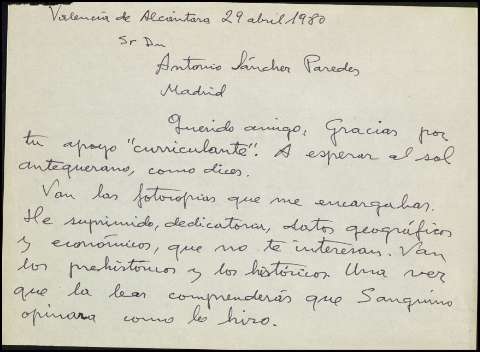 Valencia de Alcántara 29 abril 1980
Sr Dn
Antonio Sánchez Paredes
Madrid
Querido amigo, Gracias por
tu apoyo "curriculante". A esperar al sol
antequerano, como dices.
Van las fotocopias que me encargabas.
He suprimido, dedicatoria, datos geográficos
y económicos, que no te interesan. Van
los prehistóricos y los históricos. Una vez
que la leas comprenderás que Sanguino
opinara como lo hizo.